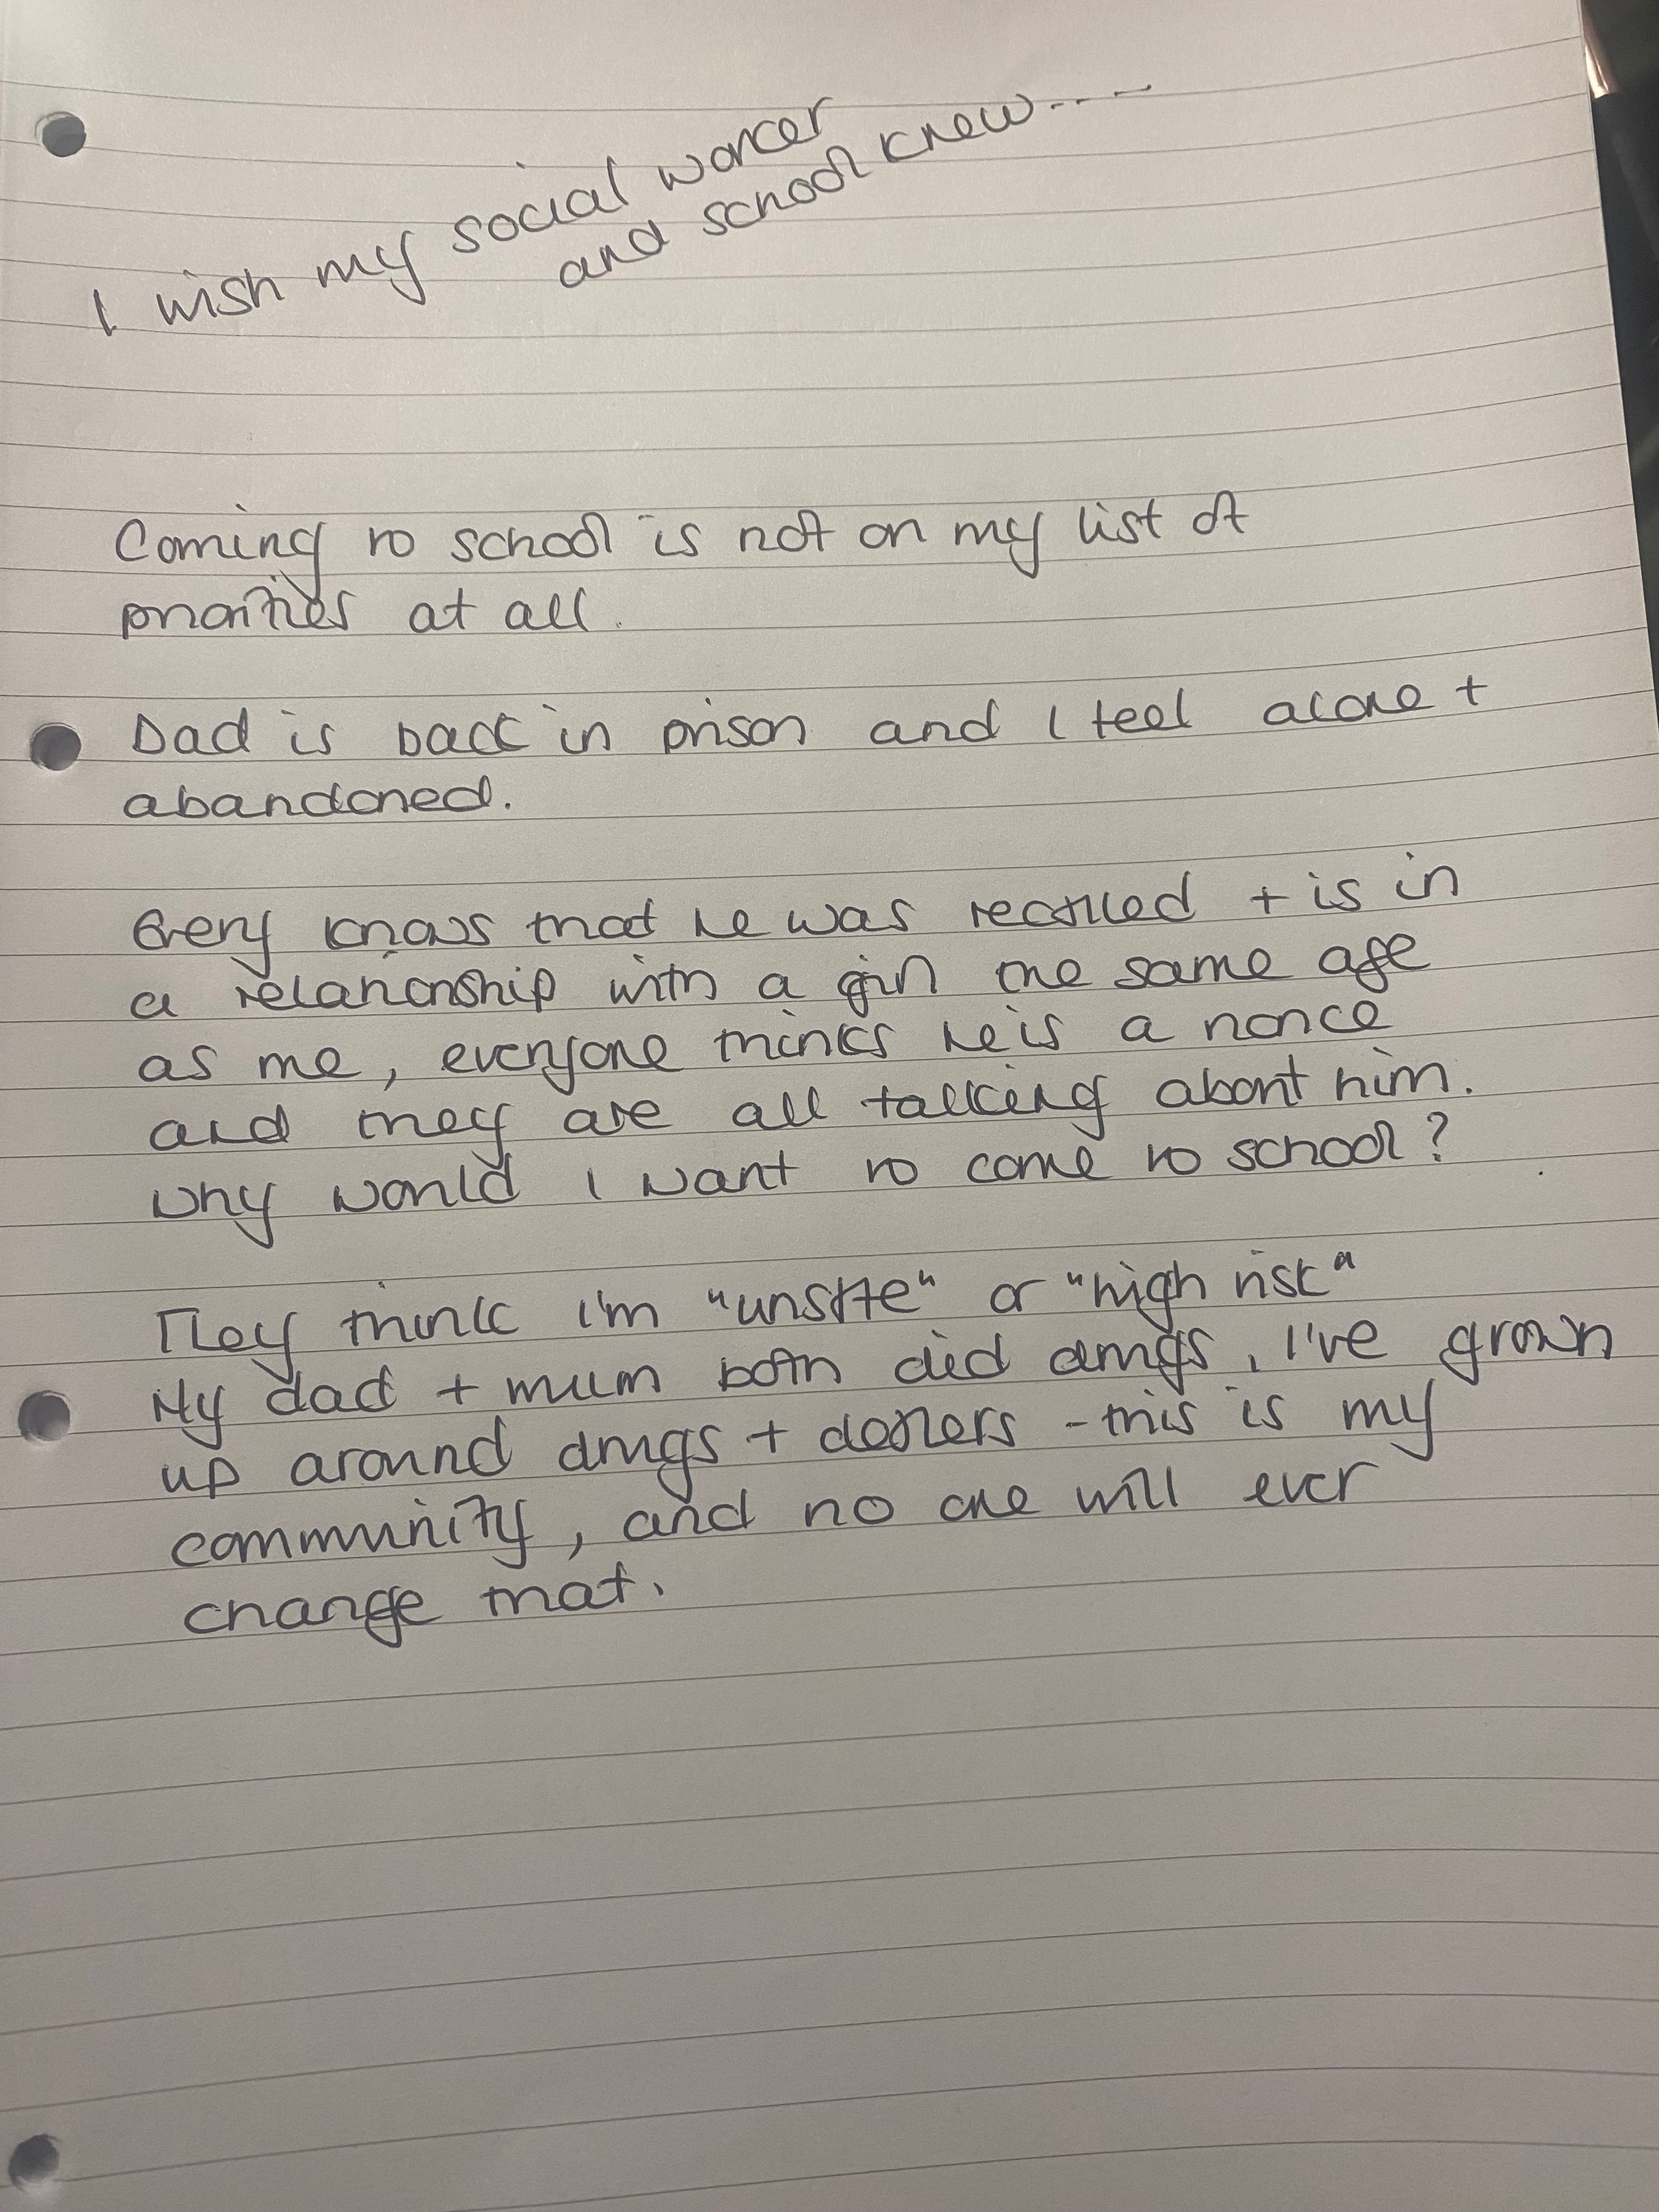 I wish my social worker
and school knew----
Coming to school is not on my list of
priorities at all.
Dad is back in prison and I feel alone +
abandoned.
Every knows that he was recalled + is in
a relationship with a girl the same age
as me, everyone thinks he is a nonce
and they are all talking about him.
Why would I want to come to school?
They think I'm "unsafe" or "high risk"
My dad + mum both did drugs, I've grown
up around drugs + dealers - this is my
community, and no one will ever
change that.